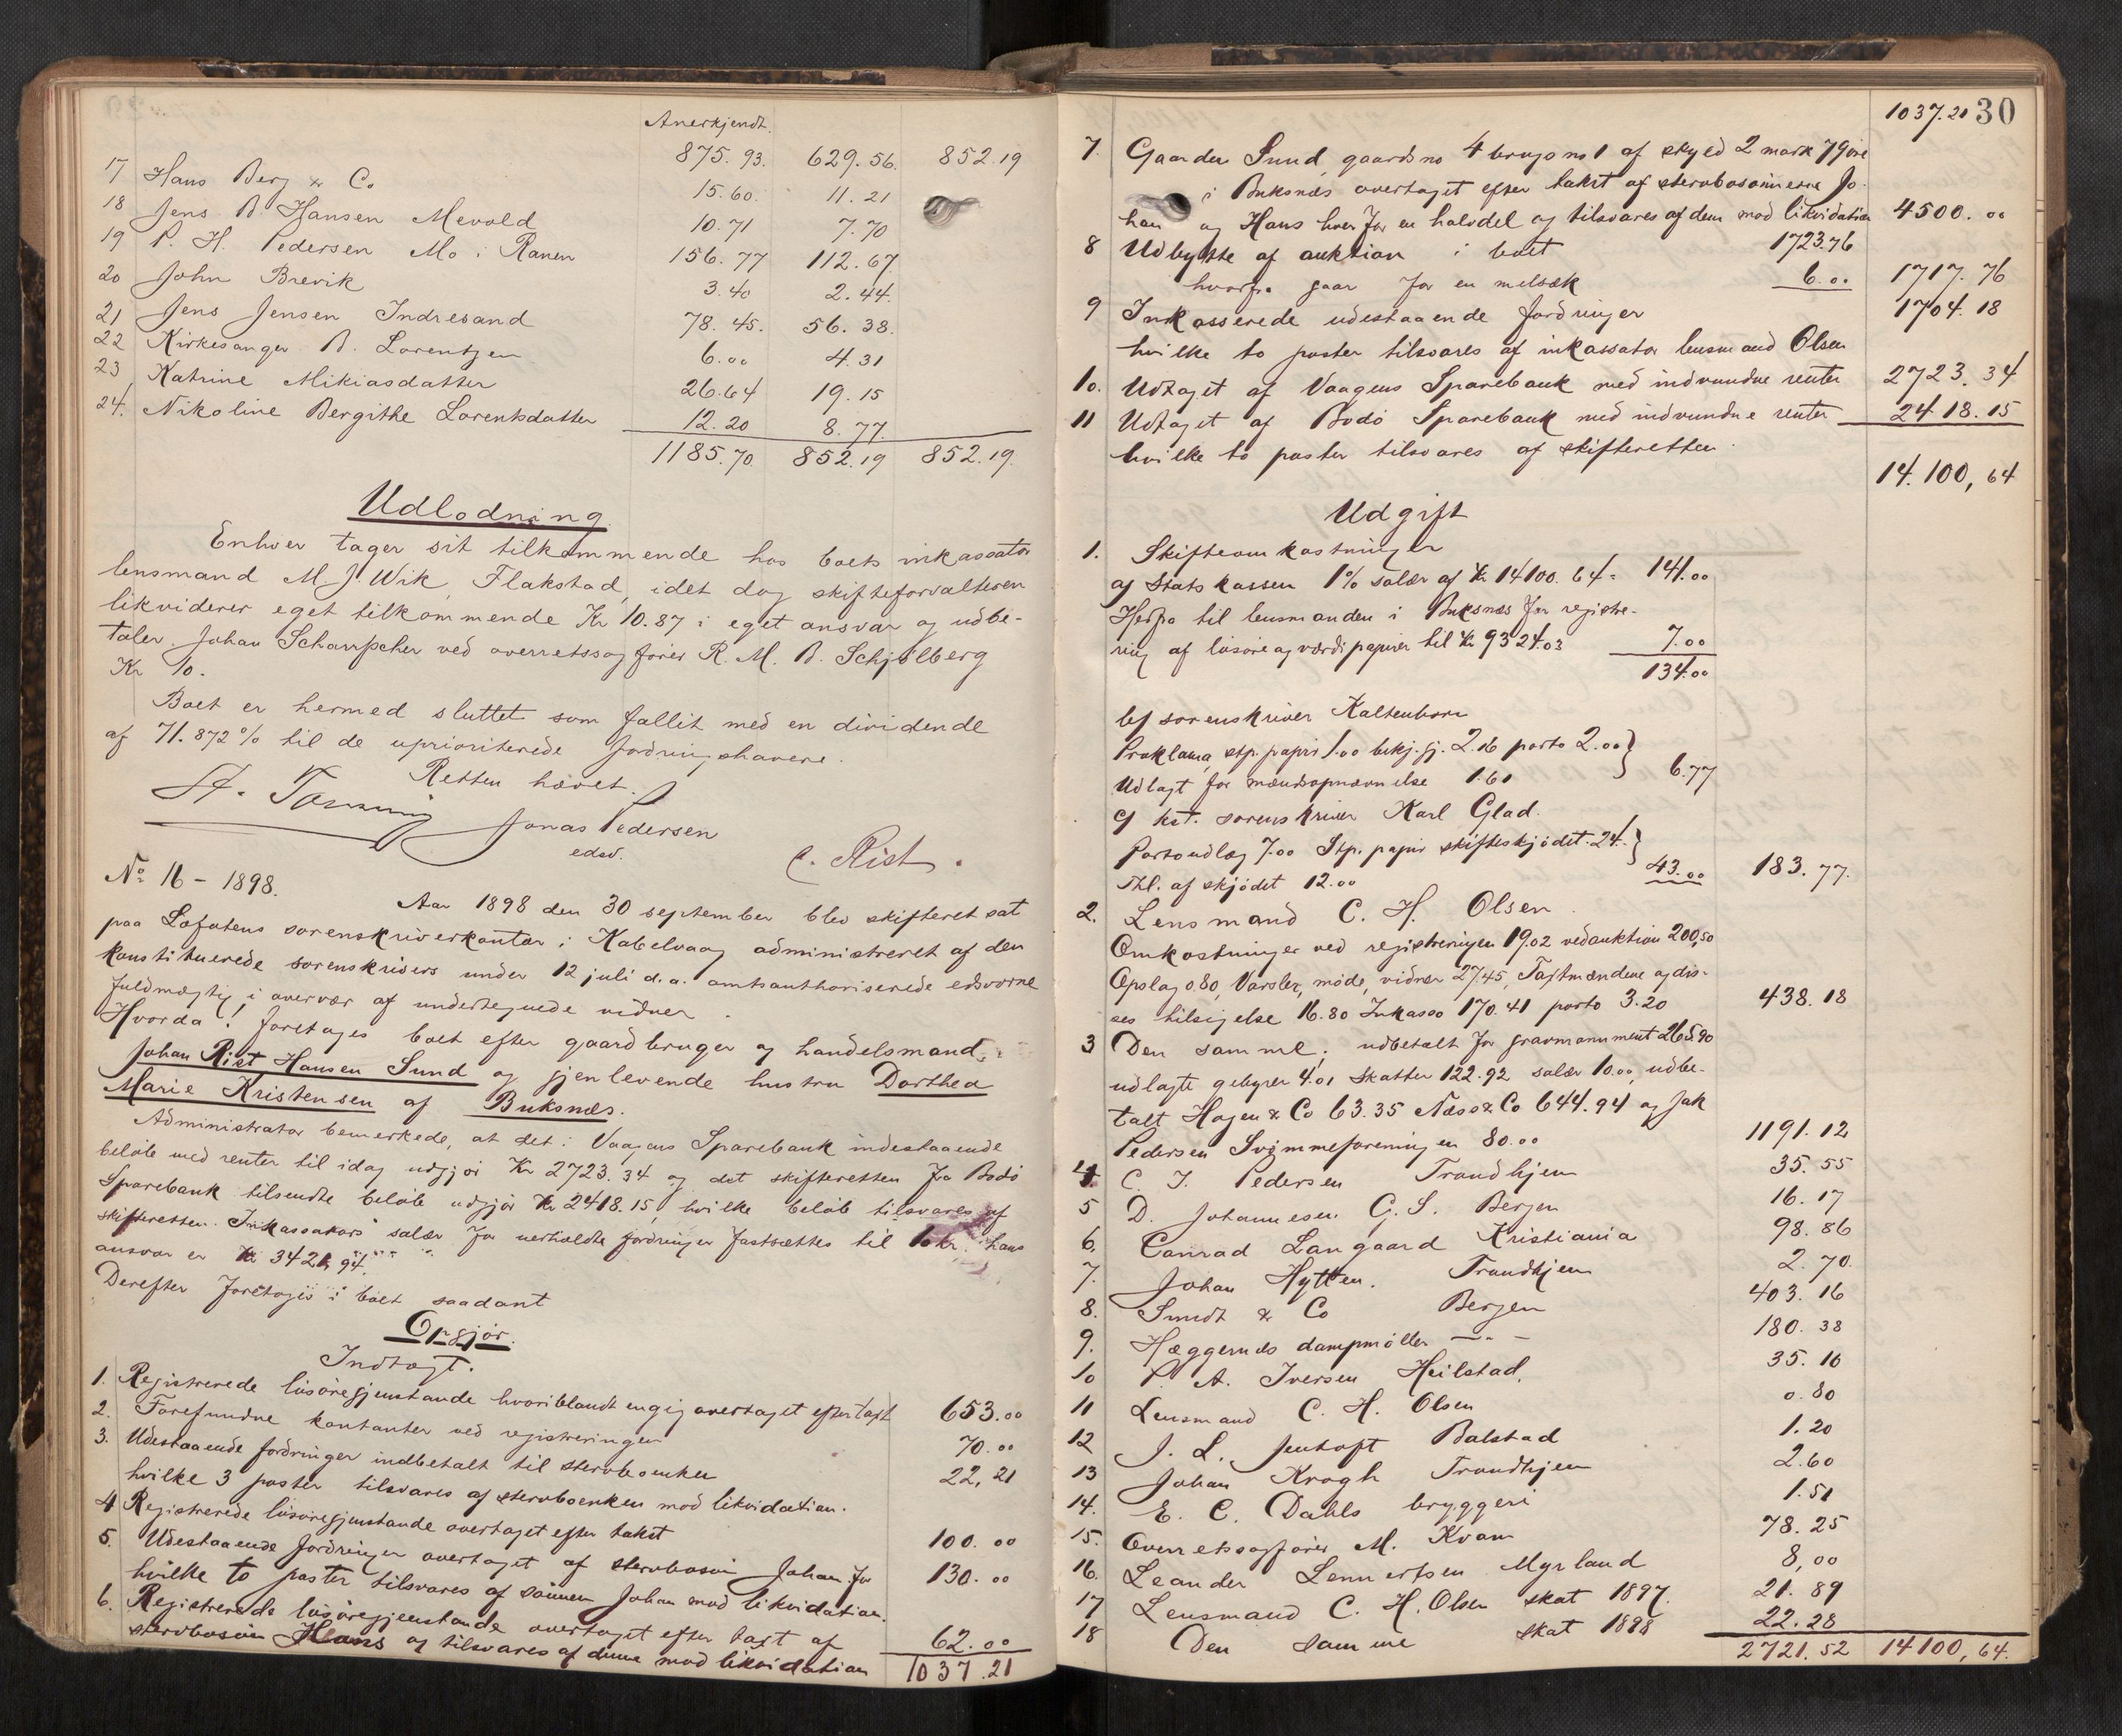 Anerkjendt.
875.93. 629.56. 852.19
17 Hans Berg & Co 15.60. 11.21
18 Jens B. Hansen Mevold 10.71 7.70
19 P. H. Pedersen Mo i Ranen 156.77 112.67
20 John Brevik 3.40 2.44.
21 Jens Jensen Indresand 78.45. 56.38.
22 Kirkesanger B. Lorentzen 6.00 4.31
23 Katrine Mikiasdatter 26.64 19.15
24. Nikoline Bergithe Lorentsdatter 12.20 8.77.
1185.70. 852.19 852.19.
Udlodning
Enhver tager sit tilkommende hos boets inkassator
lensmand M. J. Wik, Flakstad, idet dog skifteforvalteren
likviderer eget tilkommende Kr 10.87 i eget ansvar og udbe-
taler Johan Scharpscher ved overretssagfører R. M. B. Schjølberg
Kr 10.
Boet er hermed sluttet som fallit med en dividende
af 71.872% til de uprioriterede fordringshavere.
Retten hævet.
Jonas Pedersen
edsv.
C. Rist.
No 16 - 1898.
Aar 1898 den 30 september blev skifteret sat
paa Lofotens sorenskriverkontor i Kabelvaag administreret af den
konstituerede sorenskrivers under 12 juli d.a. amtsauthoriserede edsvorne
fuldmægtig i overvær af undertegnede vidner.
Hvorda! foretages boet efter gaardbruger og handelsmand
Johan Rist Hansen Sund og gjenlevende hustru Dorthea
Marie Kristensen af Buksnæs.
Administrator bemerkede, at det i Vaagens Sparebank indestaaende
beløb med renter til idag udgjør Kr 2723.34 og det skifteretten fra Bodø
Sparebank tilsendte beløb udgjør Kr 2418.15, hvilke beløb tilsvares af
skifteretten. Inkassators salær for uerholdte fordringer fastsættes til 10 kr. hans
ansvar er Kr 3421,94.
Derefter foretoges i boet saadant
Opgjør.
Indtægt.
1. Registrerede løsøregjenstande hvoriblandt en gig overtaget efter taxt 653.00
2. Forefundne kontanter ved registreringen 70.00
3. Udestaaende fordringer indbetalt til sterboenken 22,21
hvilke 3 poster tilsvares af stervboenken mod likvidation.
4 Registrerede løsøregjenstande overtaget efter takst 100.00
5. Udestaaende fordringer overtaget af stervbosøn Johan for 130.00
hvilke to poster tilsvares af sønnen Johan mod likvidation.
6. Registrerede løsøregjenstande overtaget efter taxt af
stervbosøn Hans og tilsvares af denne mod likvidation 62.00
1037.21
1037.21 30
7. Gaarden Sund, gaardsno 4 brugsno 1 af skyld 2 mark 79 øre
i Buksnæs overtaget efter takst af stervbosønnerne Jo-
han og Hans hver for en halvdel og tilsvares af dem mod likvidation 4500.00
8 Udbytte af auktion i boet 1723.76
hvorfra gaar for en melsæk 6.00 1717.76
9 Inkasserede udestaaende fordringer 1704.18
hvilke to poster tilsvares af inkassator lensmand Olsen
10. Udtaget af Vaagens Sparebank med indvundne renter 2723.34
11 Udtaget af Bodø Sparebank med indvundne renter 2418.15
hvilke to poster tilsvares af skifteretten.
14.100,64
Udgift
1. Skifteomkostninger
a) Statskassen 1% salær af Kr 14100.64 = 141.00
Herfra til lensmanden i Buksnæs for registre-
ring af løsøre og værdipapirer til Kr 9324.03 7.00
134.00
b) sorenskriver Kaltenborn
Proklama, stp. papir 1.00 bekj.gj. 2.16 porto 2.00
Udlagt for mændsopnævnelse 1.61 6.77
c) kst. sorenskriver Karl Glad.
Portoudlæg 7.00 Stp. papir skifteskjødet 24.
Thl. af skjødet 12.00 43.00 183.77.
2. Lensmand C. H. Olsen
Omkostninger ved registreringen 19.02 ved auktion 200,50
Opslag 0.80, Varsler, møde, vidner 27.45, Taxtmændene og dis-
ses tilsigelse 16.80 Inkasso 170.41 porto 3.20 438.18
3 Den samme; udbetalt for gravmonument 265.90
udlagte gebyrer 4.01 Skatter 122.92 salær 10.00, udbe-
talt Hagen & Co 63.35 Næss & Co 644.94 og Jak
Pedersen Svømmeforeningen 80.00 1191.12
4. C. J. Pedersen Trondhjem 35.55
5 D. Johannesen G. S. Bergen 16.17
6. Conrad Langaard Kristiania 98.86
7. Johan Hytten. Trondhjem 2.70.
8. Smidt & Co Bergen 403.16
9. Hæggernæs dampmøller — " — 180.38
10 P. A. Iversen Heilstad. 35.16
11 Lensmand C. H. Olsen 0.80
12 J. L. Jentoft Balstad 1.20
13 Johan Krogh Trondhjem 2.60
14. E. C. Dahls bryggeri 1.51
15. Overretssagfører M. Kvam 78.25
16. Leander Lennertsen Myrland 8,00
17 Lensmand C. H. Olsen skat 1897. 21.89
18 Den samme skat 1898 22.28
2721.52 14100,64.